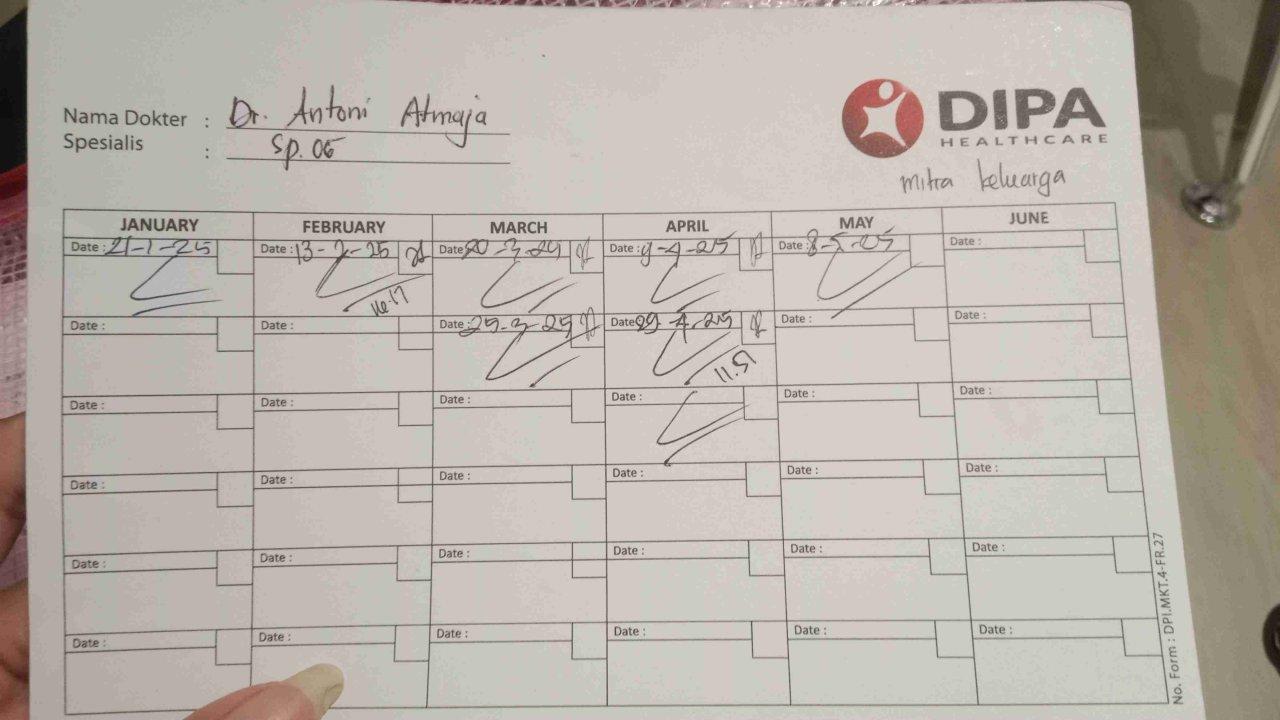 Nama Dokter : Dr. Antoni Atmaja
Spesialis : Sp. OG
DIPA
HEALTHCARE
mitra keluarga
JANUARY FEBRUARY MARCH APRIL MAY JUNE
Date : 21-1-25 Date : 13-2-25 Date : 20-3-25 Date : 9-4-25 Date : 8-5-25 Date :
16.17
Date : Date : Date : 25-3-25 Date : 29-4-25 Date : Date :
11.51
Date : Date : Date : Date : Date : Date :
Date : Date : Date : Date : Date : Date :
Date : Date : Date : Date : Date : Date :
Date : Date : Date : Date : Date : Date :
No. Form : DPI.MKT.4-FR.27